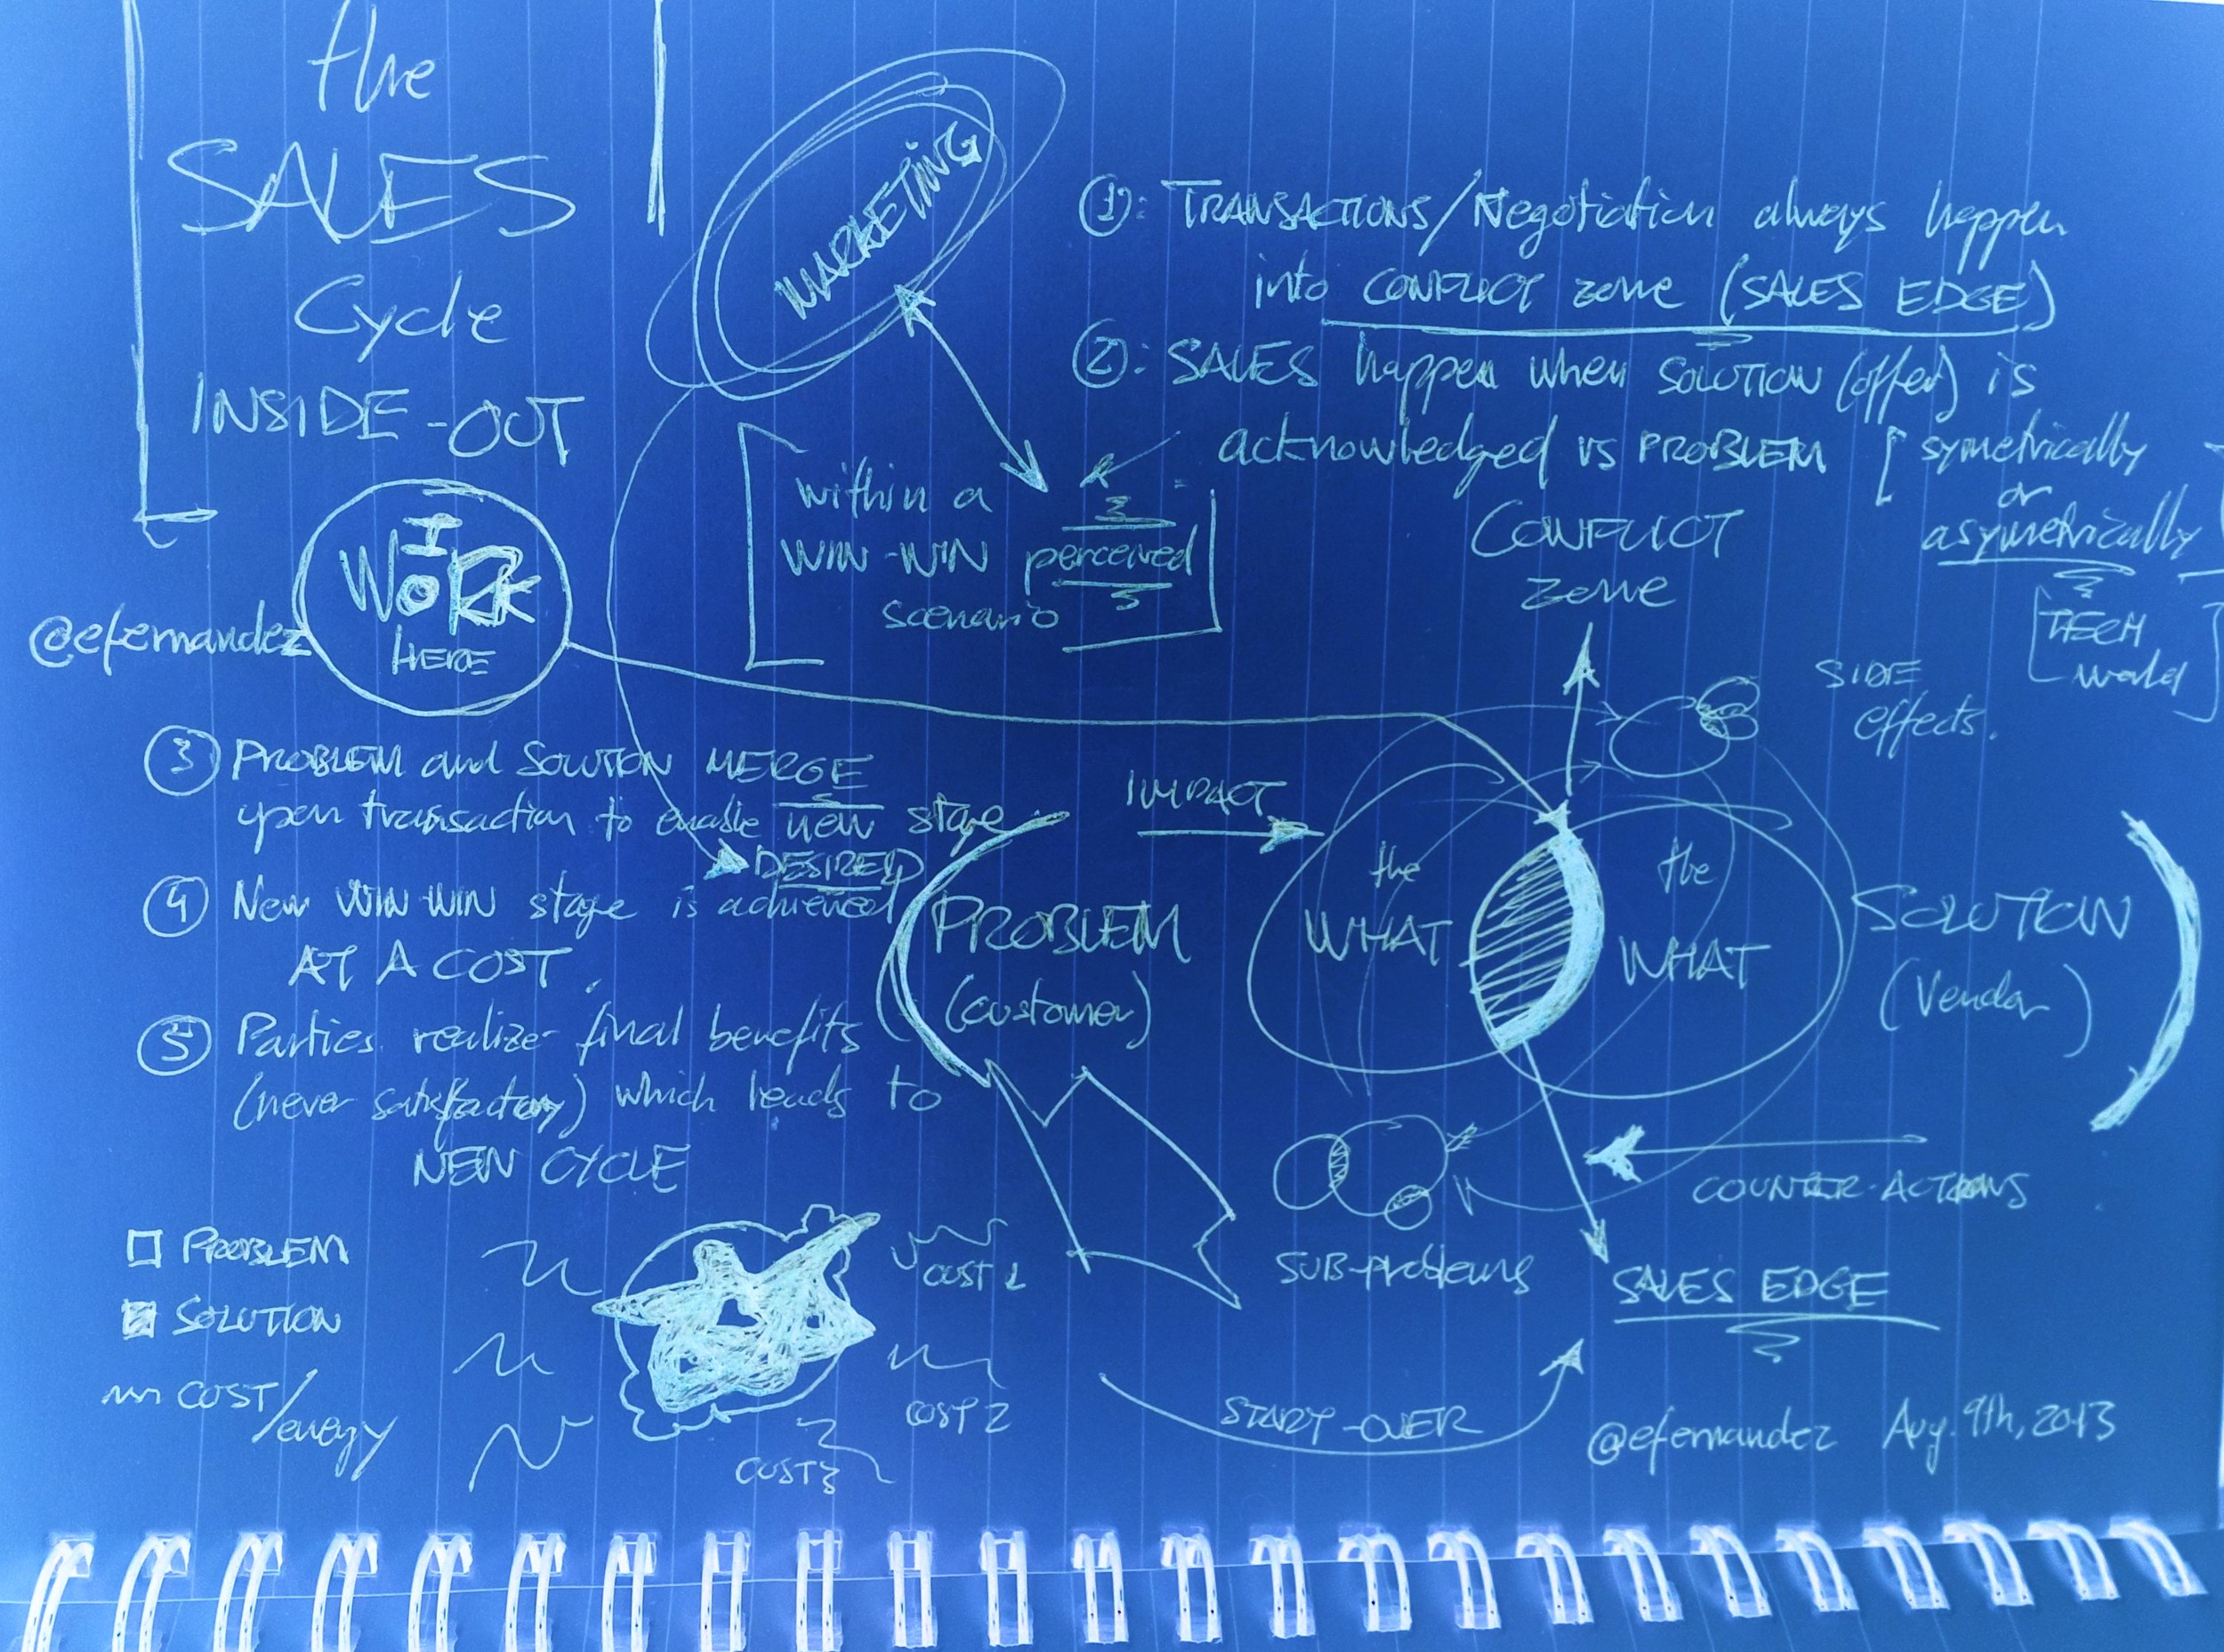 the
SALES
Cycle
INSIDE-OUT
MARKETING
①: TRANSACTIONS/Negotiation always happen
into CONFLICT zone (SALES EDGE)
②: SALES happen when SOLUTION (offer) is
acknowledged vs PROBLEM [symetrically
or
asymetrically
[TECH
World]
[within a
WIN-WIN perceived
scenario]
I
WORK
HERE
@efernandez
CONFLICT
zone
SIDE
effects.
③ PROBLEM and SOLUTION MERGE
upon transaction to enable new stage
DESIRED
④ New WIN-WIN stage is achieved
AT A COST.
⑤ Parties realize final benefits
(never satisfactory) which leads to
NEW CYCLE
IMPACT
PROBLEM
(customer)
the
WHAT
the
WHAT
SOLUTION
(Vendor)
COUNTER-ACTIONS
SUB-problems
SALES EDGE
PROBLEM
SOLUTION
COST/energy
COST 1
COST 2
COST 3
START-OVER
@efernandez Aug. 9th, 2013